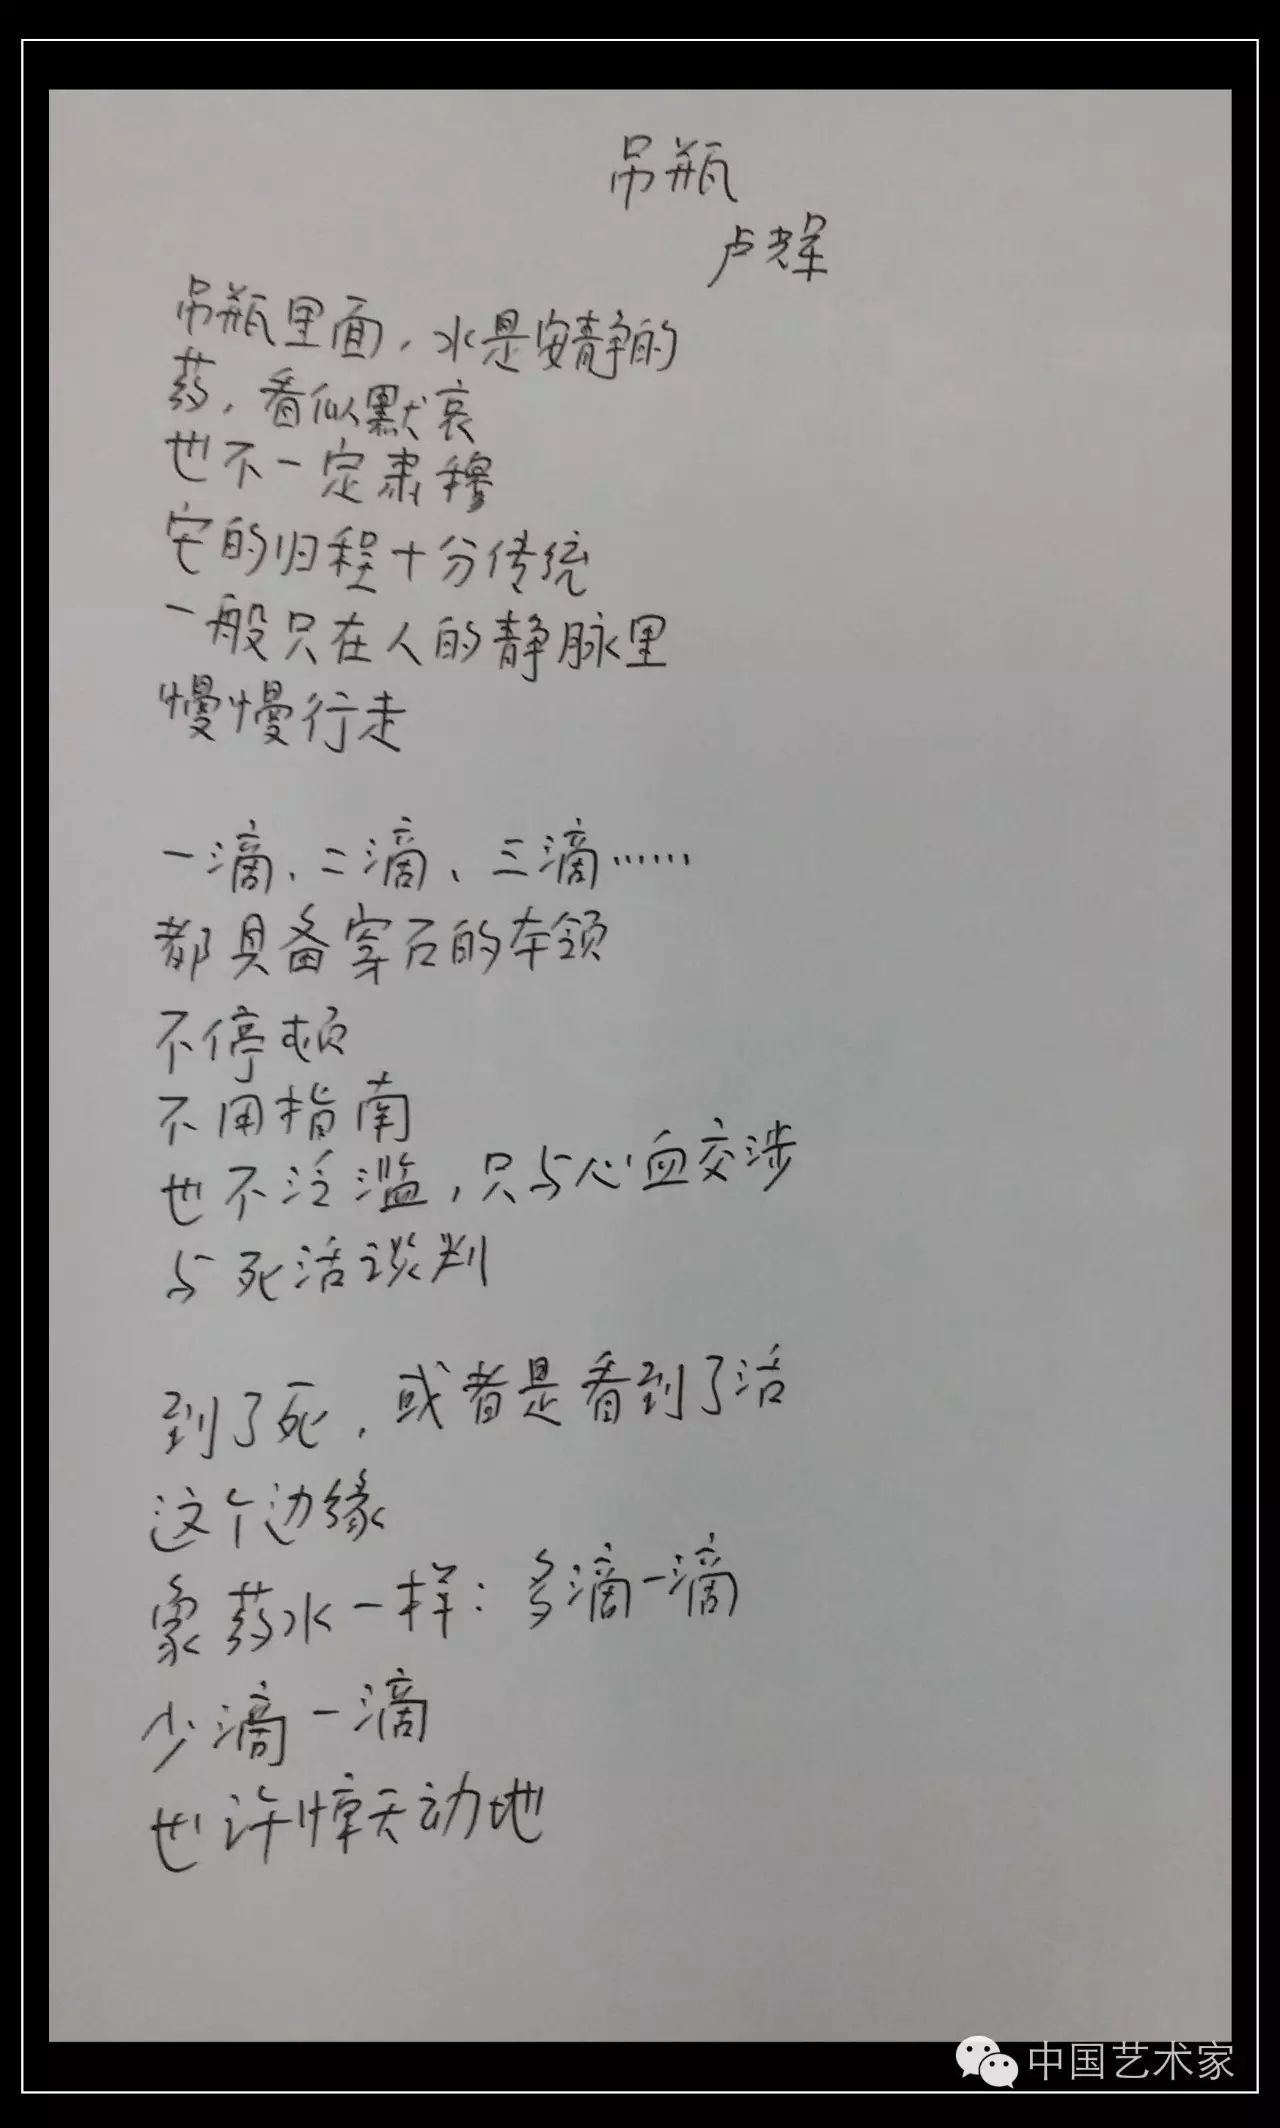 吊瓶
卢辉
吊瓶里面，水是安静的
药，看似默哀
也不一定肃穆
它的归程十分传统
一般只在人的静脉里
慢慢行走
一滴、二滴、三滴……
都具备穿石的本领
不停顿
不用指南
也不泛滥，只与心血交涉
与死活谈判
到了死，或者是看到了活
这个边缘
象药水一样：多滴一滴
少滴一滴
也许惊天动地
中国艺术家